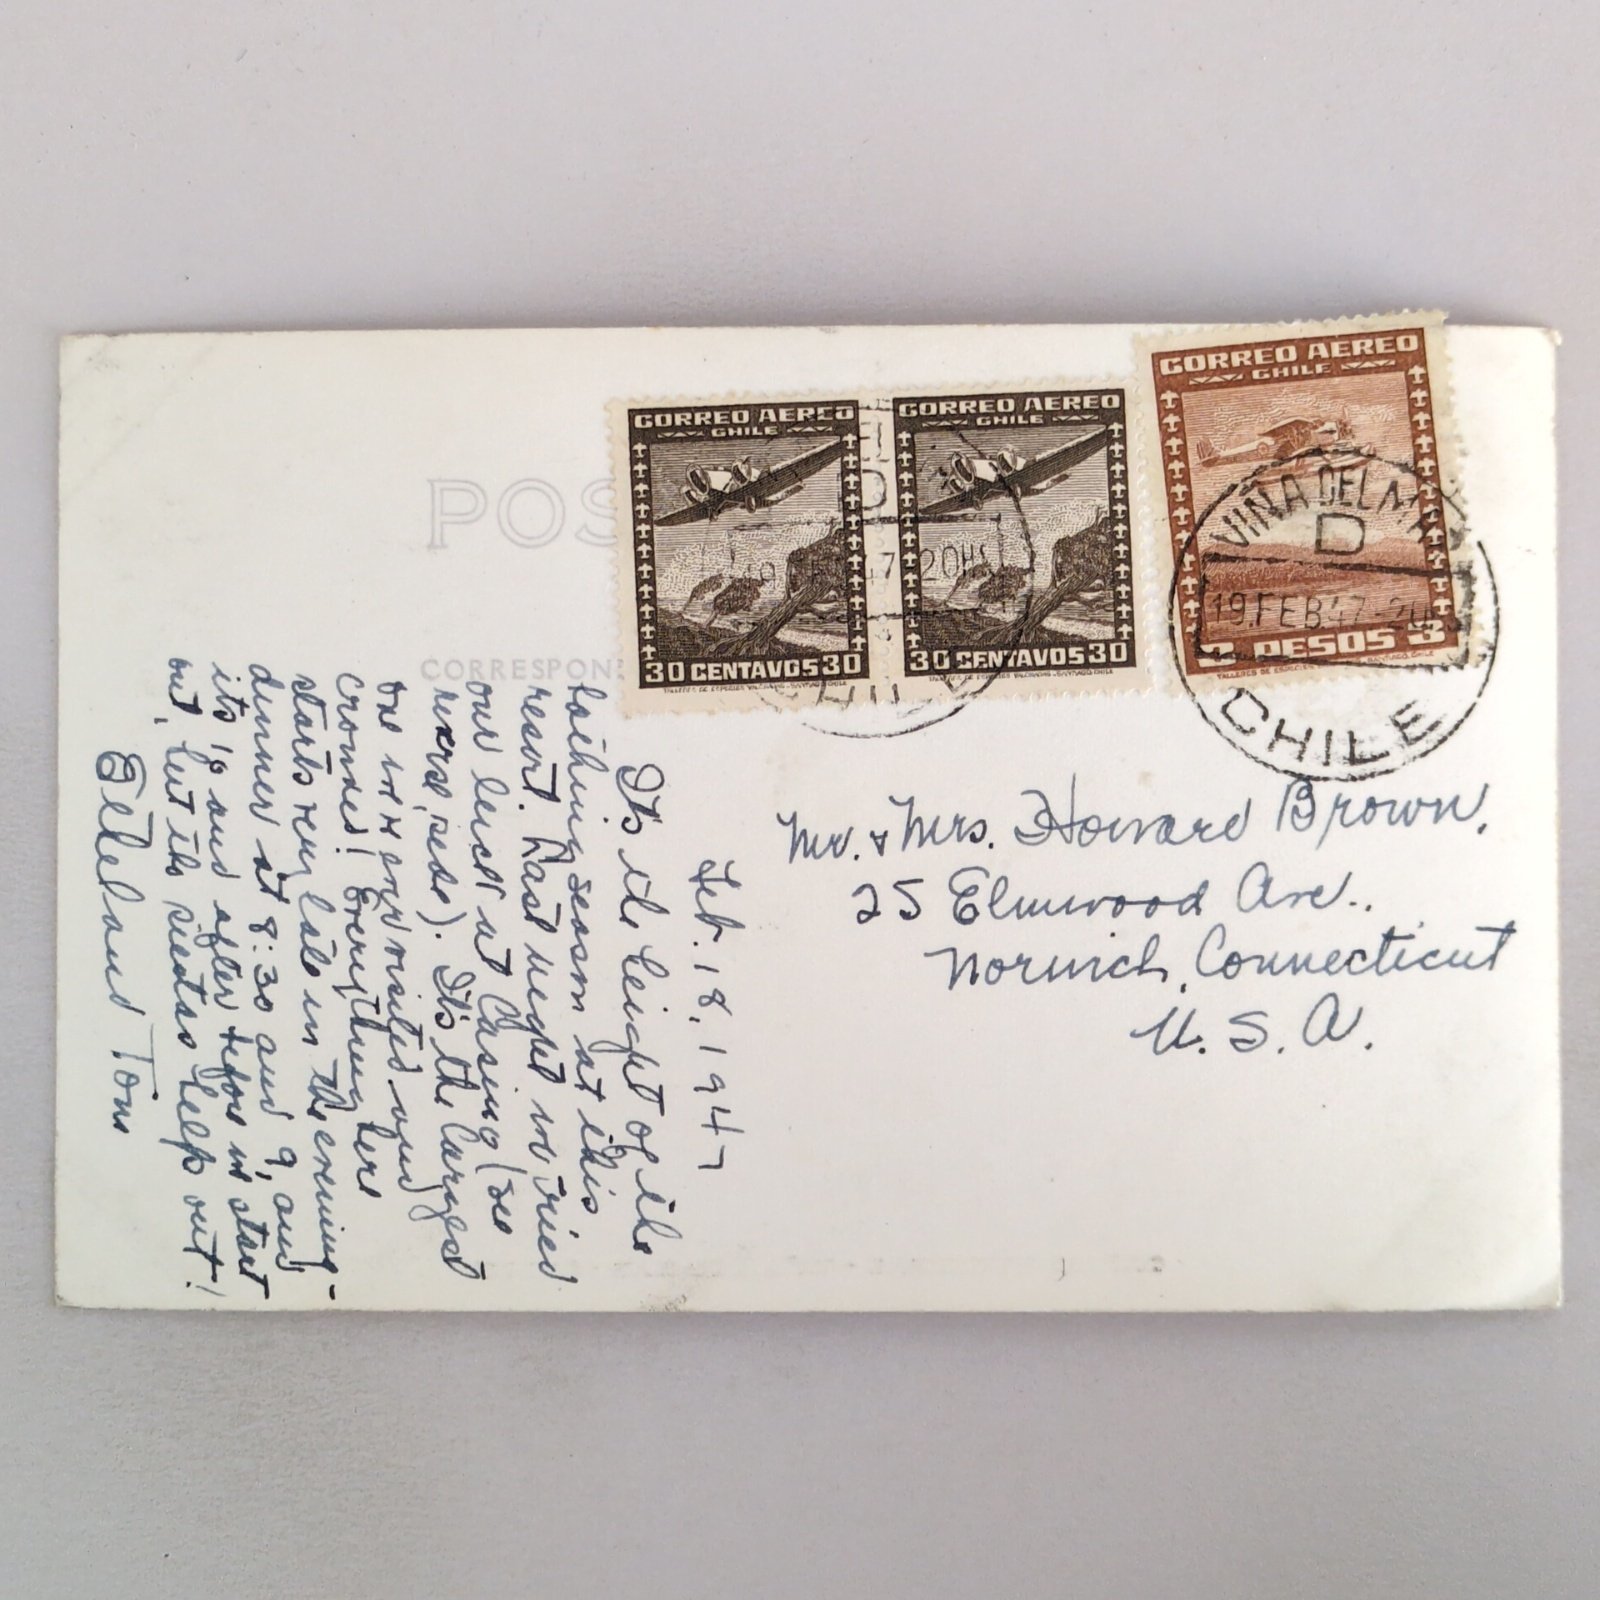 POS
CORRESPON
CORREO AEREO
CHILE
30 CENTAVOS 30
TALLERES DE ESPECIES VALORADAS - SANTIAGO, CHILE
CORREO AEREO
CHILE
30 CENTAVOS 30
TALLERES DE ESPECIES VALORADAS - SANTIAGO, CHILE
CORREO AEREO
CHILE
PESOS 3
TALLERES DE ESPECIES VALORADAS - SANTIAGO, CHILE
VIÑA DEL M
D
19.FEB.47-20
CHILE
D
19 47 20HS
CHILE
Feb. 18, 1947
It's the height of the
bathing season at this
resort. Last night we tried
our luck at Casino (see
reverse side). It's the largest
one we ever visited and
crowded! Everything here
starts very late in the evening -
dinner at 8:30 and 9, and
its 10 and after before we start
out, but the siestas help out!
Ethel and Tom
Mr. & Mrs. Howard Brown,
25 Elmwood Ave.,
Norwich, Connecticut
U. S. A.